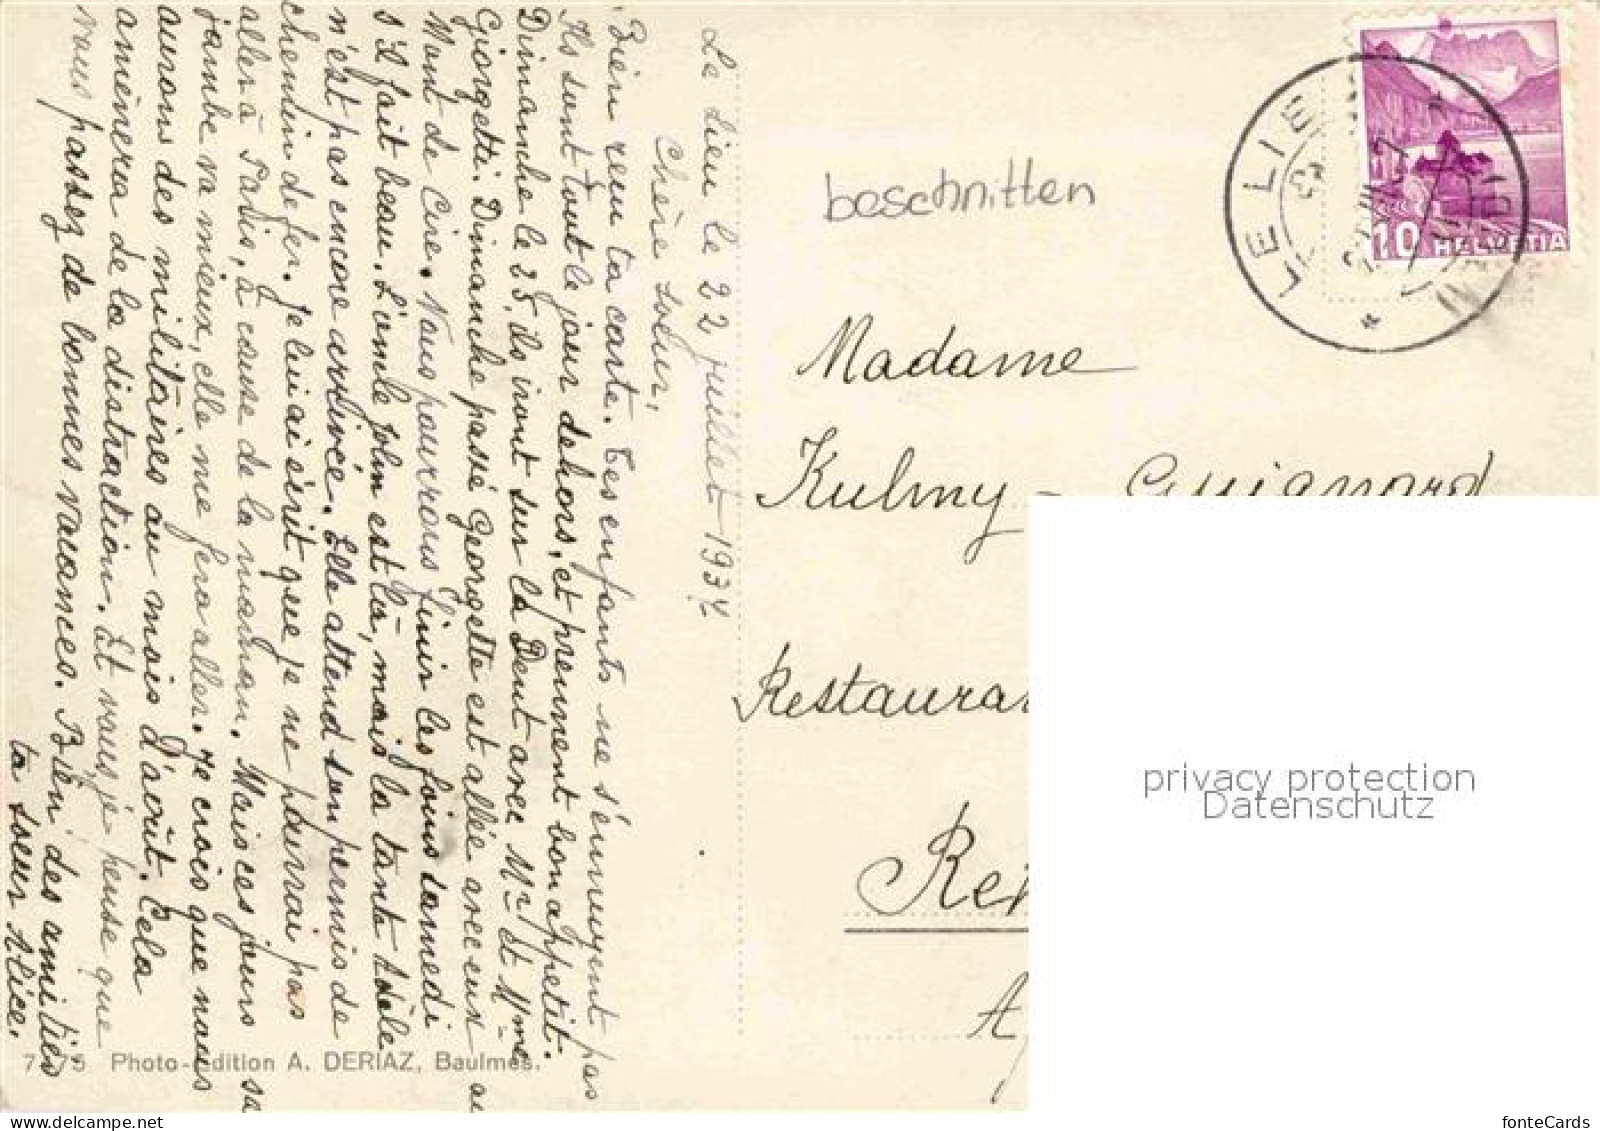 Le Lieu le 22 juillet 1937
Chère soeur,
Bien reçu ta carte. Tes enfants ne s'énnuyent pas
Ils sont tout le jour dehors, et prennent bon appetit.
Dimanche le 25, ils iront sur la Dent avec Mr et Mme
Giorgetti. Dimanche passé Georgette est allée avec eux au
Mont de Cire. Nous pourrons finir les foins samedi
s'il fait beau. L'oncle John est là, mais la tante Adèle
n'est pas encore arrivée. Elle attend son permis de
chemin de fer. Je lui ai écrit que je ne pourrai pas
aller à Paris, à cause de la maman. Mais ces jours sa
jambe va mieux, elle me fera aller. Je crois que nous
aurons des militaires au mois d'août. Cela
amènera de la distraction. Et vous, je pense que
vous passez de bonnes vacances. Bien des amitiés
ta soeur Alice.
Photo-Edition A. DERIAZ, Baulmes.
beschnitten
LE LIE
10 HELVETIA
Madame
Kulmy - Guignard
Restaura
Re
A
privacy protection
Datenschutz
fonteCards